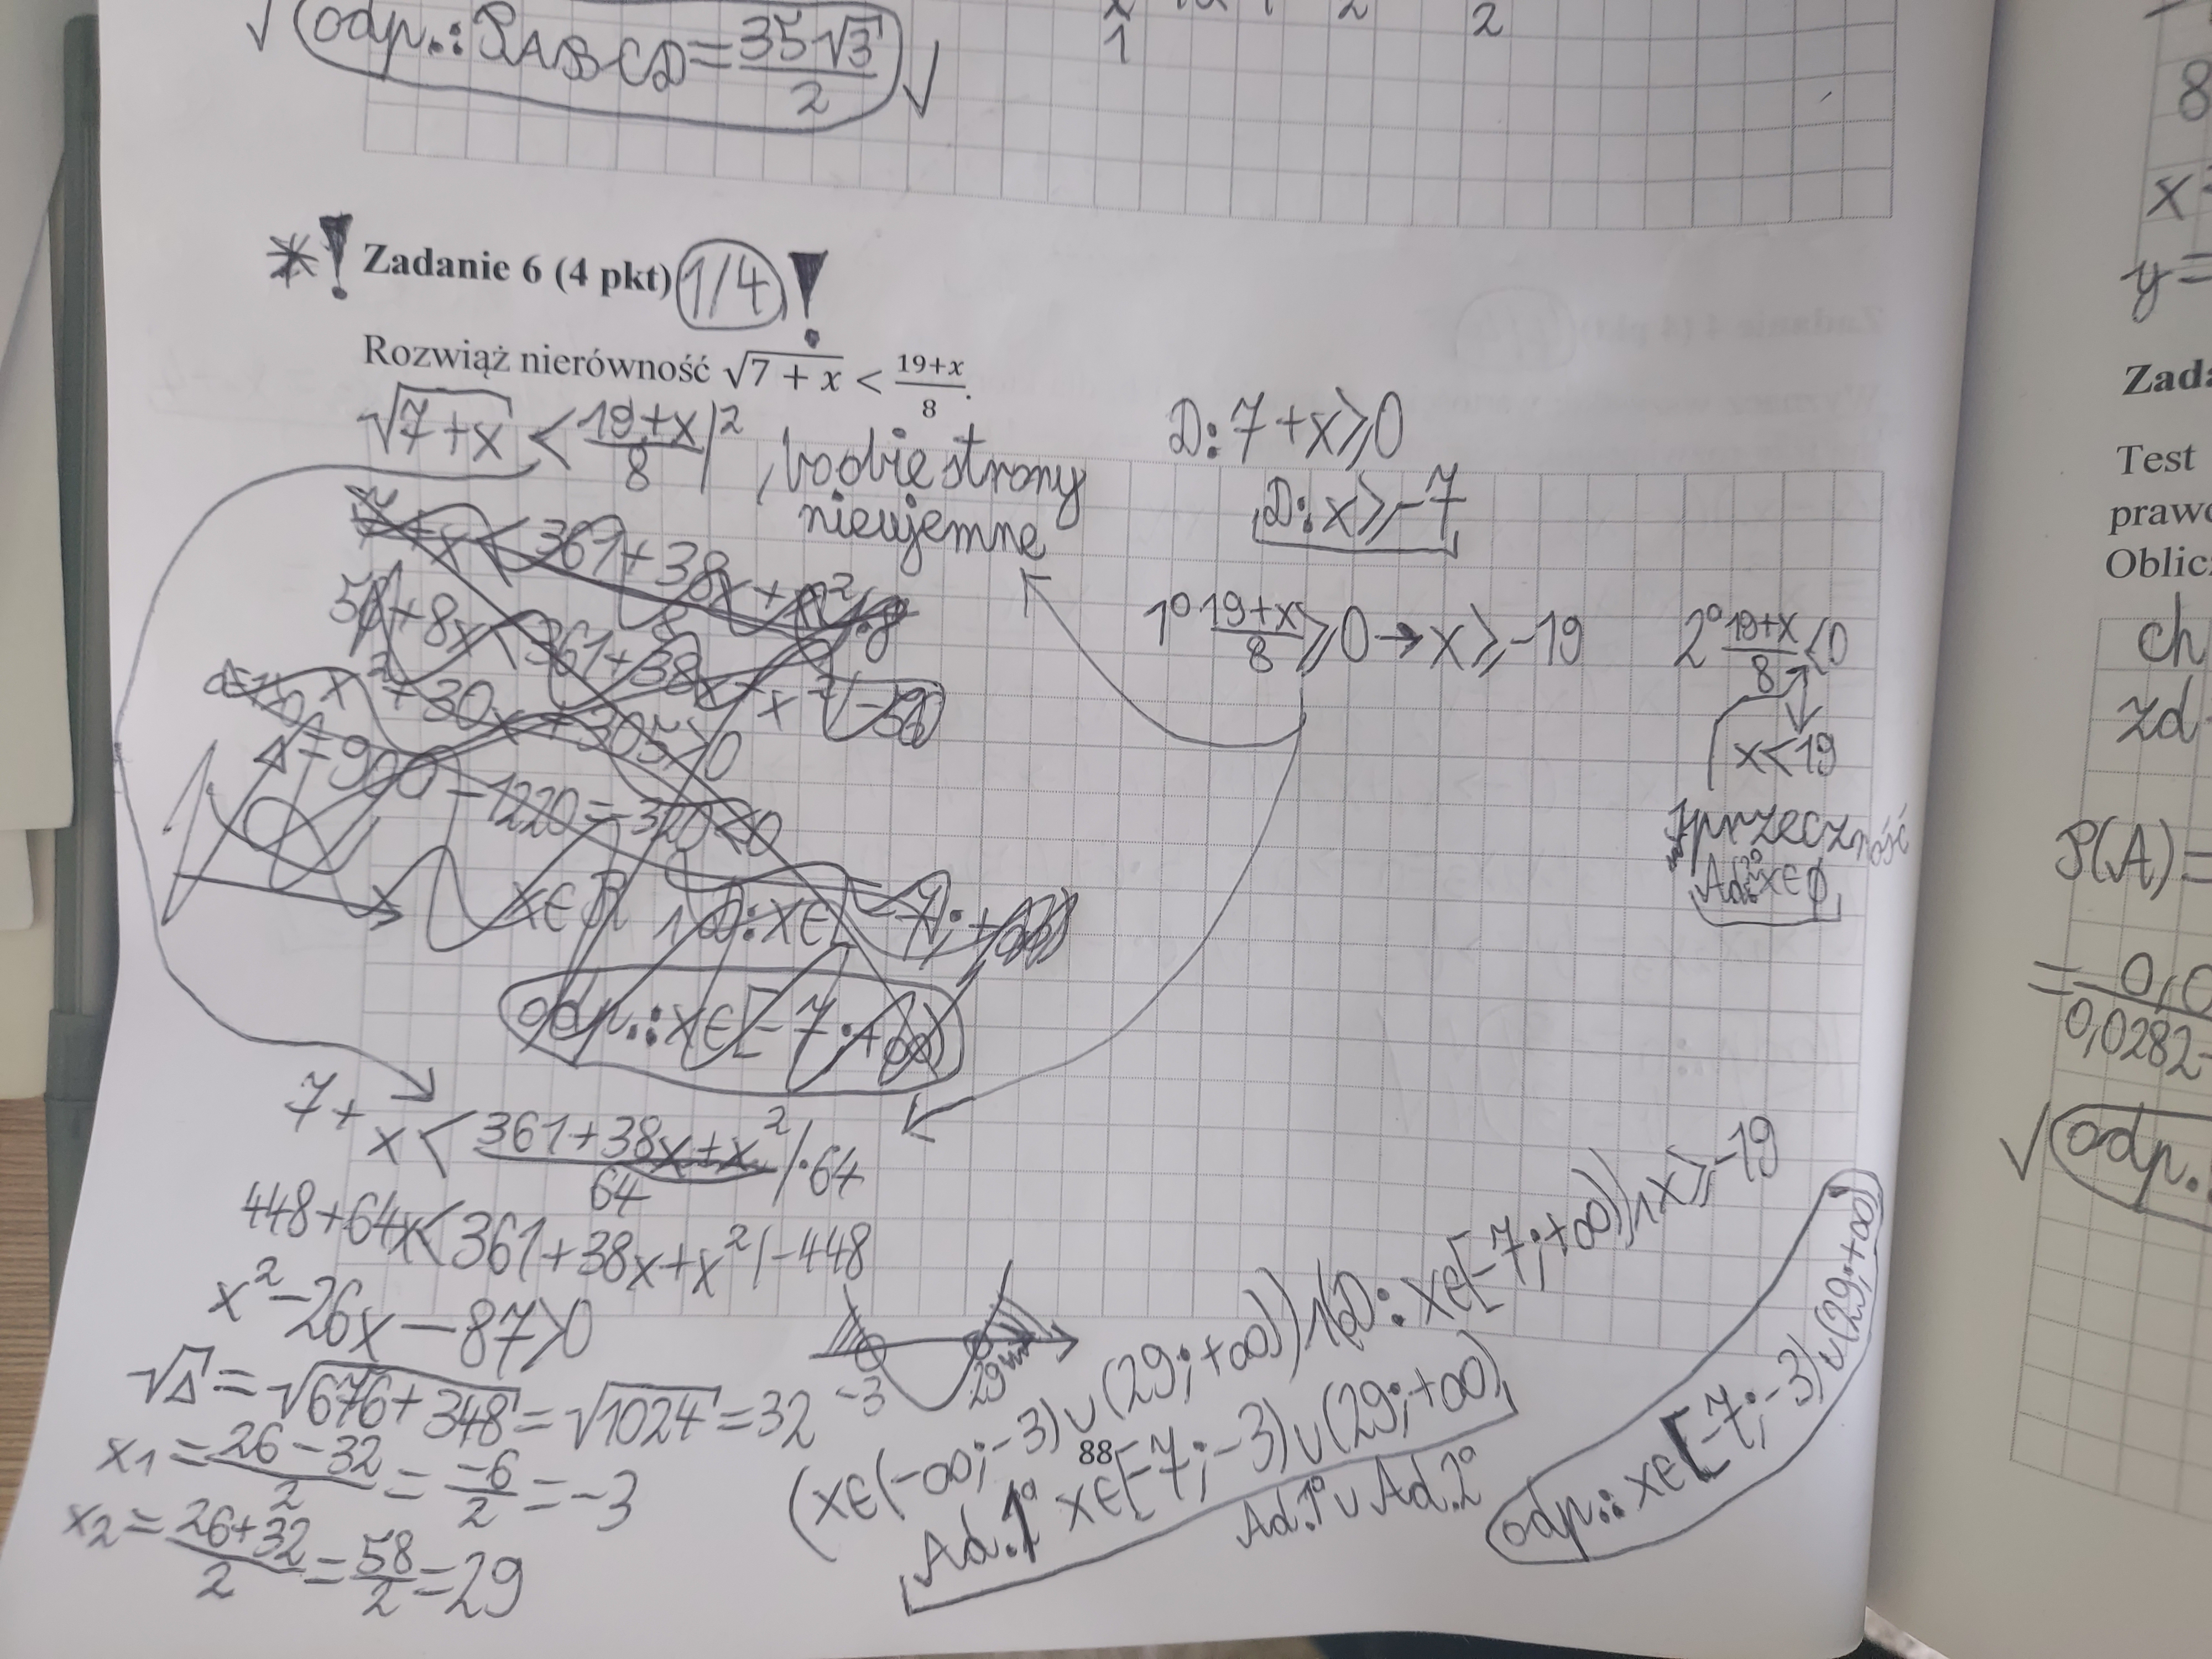 √ odp.: PABCD = 35√3/2 √
1
2
2
* ! Zadanie 6 (4 pkt) 1/4 !
Rozwiąż nierówność √7 + x < 19+x/8.
√7+x < 19+x/8 |², bo obie strony
nieujemne
D: 7+x⩾0
D: x⩾-7
1° 19+x/8 ⩾0 → x⩾-19
2° 19+x/8 <0
x<19
sprzeczność
Ad.2° x∈ϕ
7+x < 361+38x+x²/8 /·8
56+8x < 361+38x+x² /-56
x²+30x+305>0
Δ=900-1220=-320<0
x∈R ∧ D: x∈[-7;+∞)
odp.: x∈[-7;+∞)
7+x < 361+38x+x²/64 /·64
448+64x<361+38x+x² /-448
x²-26x-87>0
√Δ = √676+348 = √1024 = 32
x1 = 26-32/2 = -6/2 = -3
x2 = 26+32/2 = 58/2 = 29
-3
29
(x∈(-∞;-3)∪(29;+∞))∧(D: x∈[-7;+∞))∧x⩾-19
Ad.1° x∈[-7;-3)∪(29;+∞)
Ad.1°∪Ad.2°
odp.: x∈[-7;-3)∪(29;+∞)
88
8
x²
y=
Zada
Test
prawd
Oblicz
ch
zd
P(A)=
= 0,0
0,0282-
√ odp.